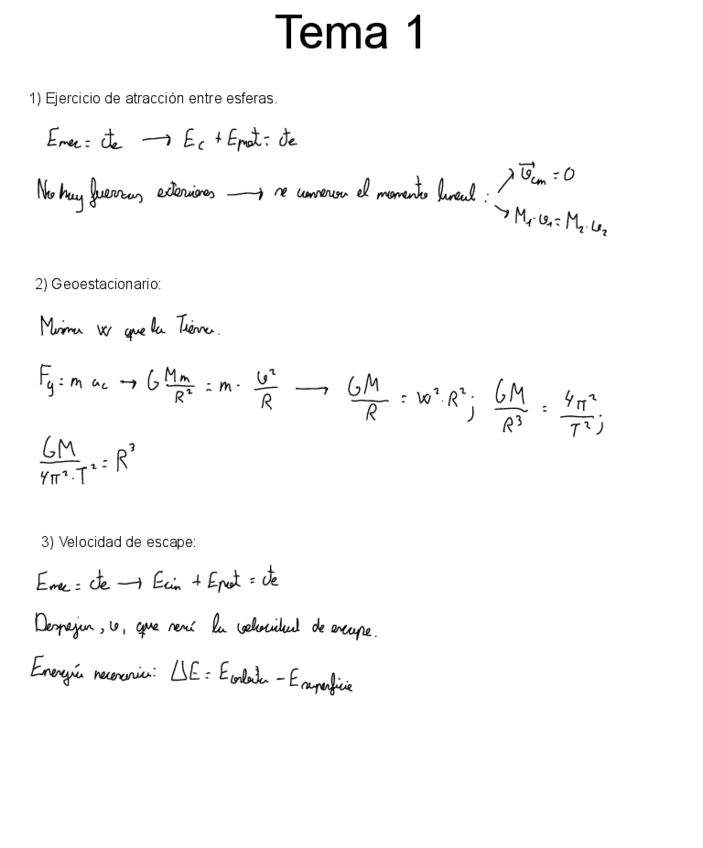 Tema 1
1) Ejercicio de atracción entre esferas.
Emec = cte → Ec + Epot = cte
No hay fuerzas exteriores → se conserva el momento lineal : ↗ v⃗cm = 0
↘ M₁·v₁ = M₂·v₂
2) Geoestacionario:
Misma w que la Tierra.
Fg = m ac → G Mm/R² = m · v²/R → GM/R = w²·R²; GM/R³ = 4π²/T²;
GM/4π² · T² = R³
3) Velocidad de escape:
Emec = cte → Ecin + Epot = cte
Despejar, v, que será la velocidad de escape.
Energía necesaria: ΔE = Eorbita - Esuperficie